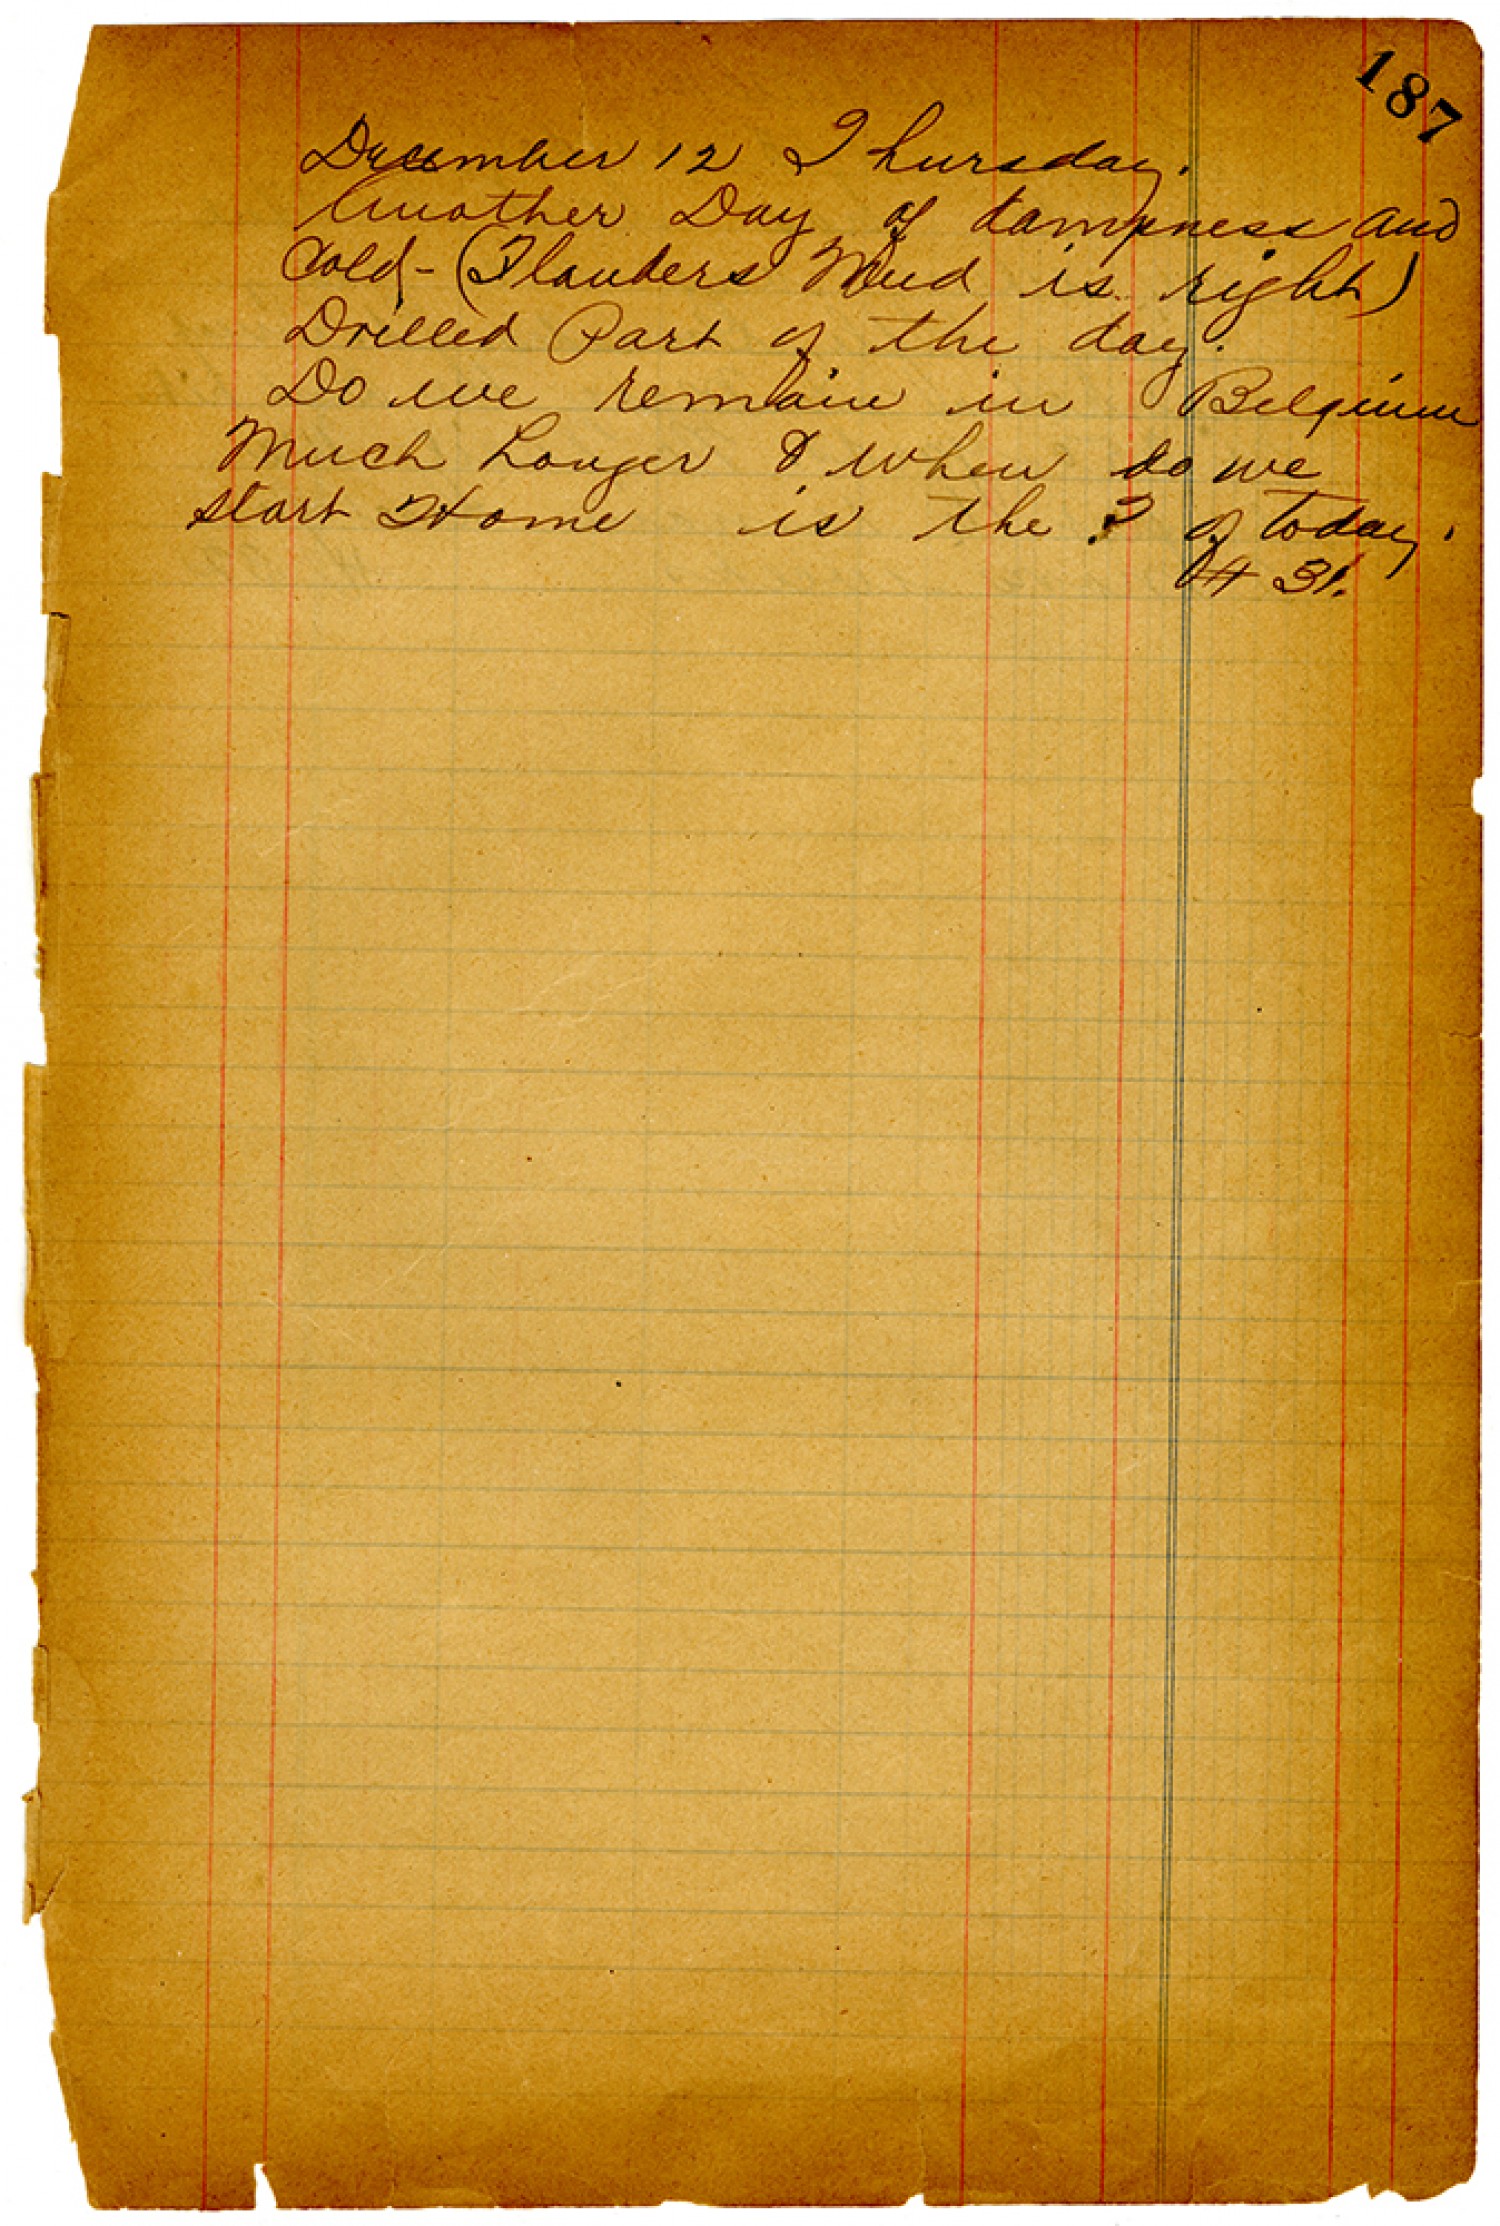 187
December 12 Thursday.
Another Day of dampness and
Cold - (Flanders Mud is right)
Drilled Part of the day.
Do we remain in Belgium
Much Longer & when do we
start Home is the ? of today.
# 31.